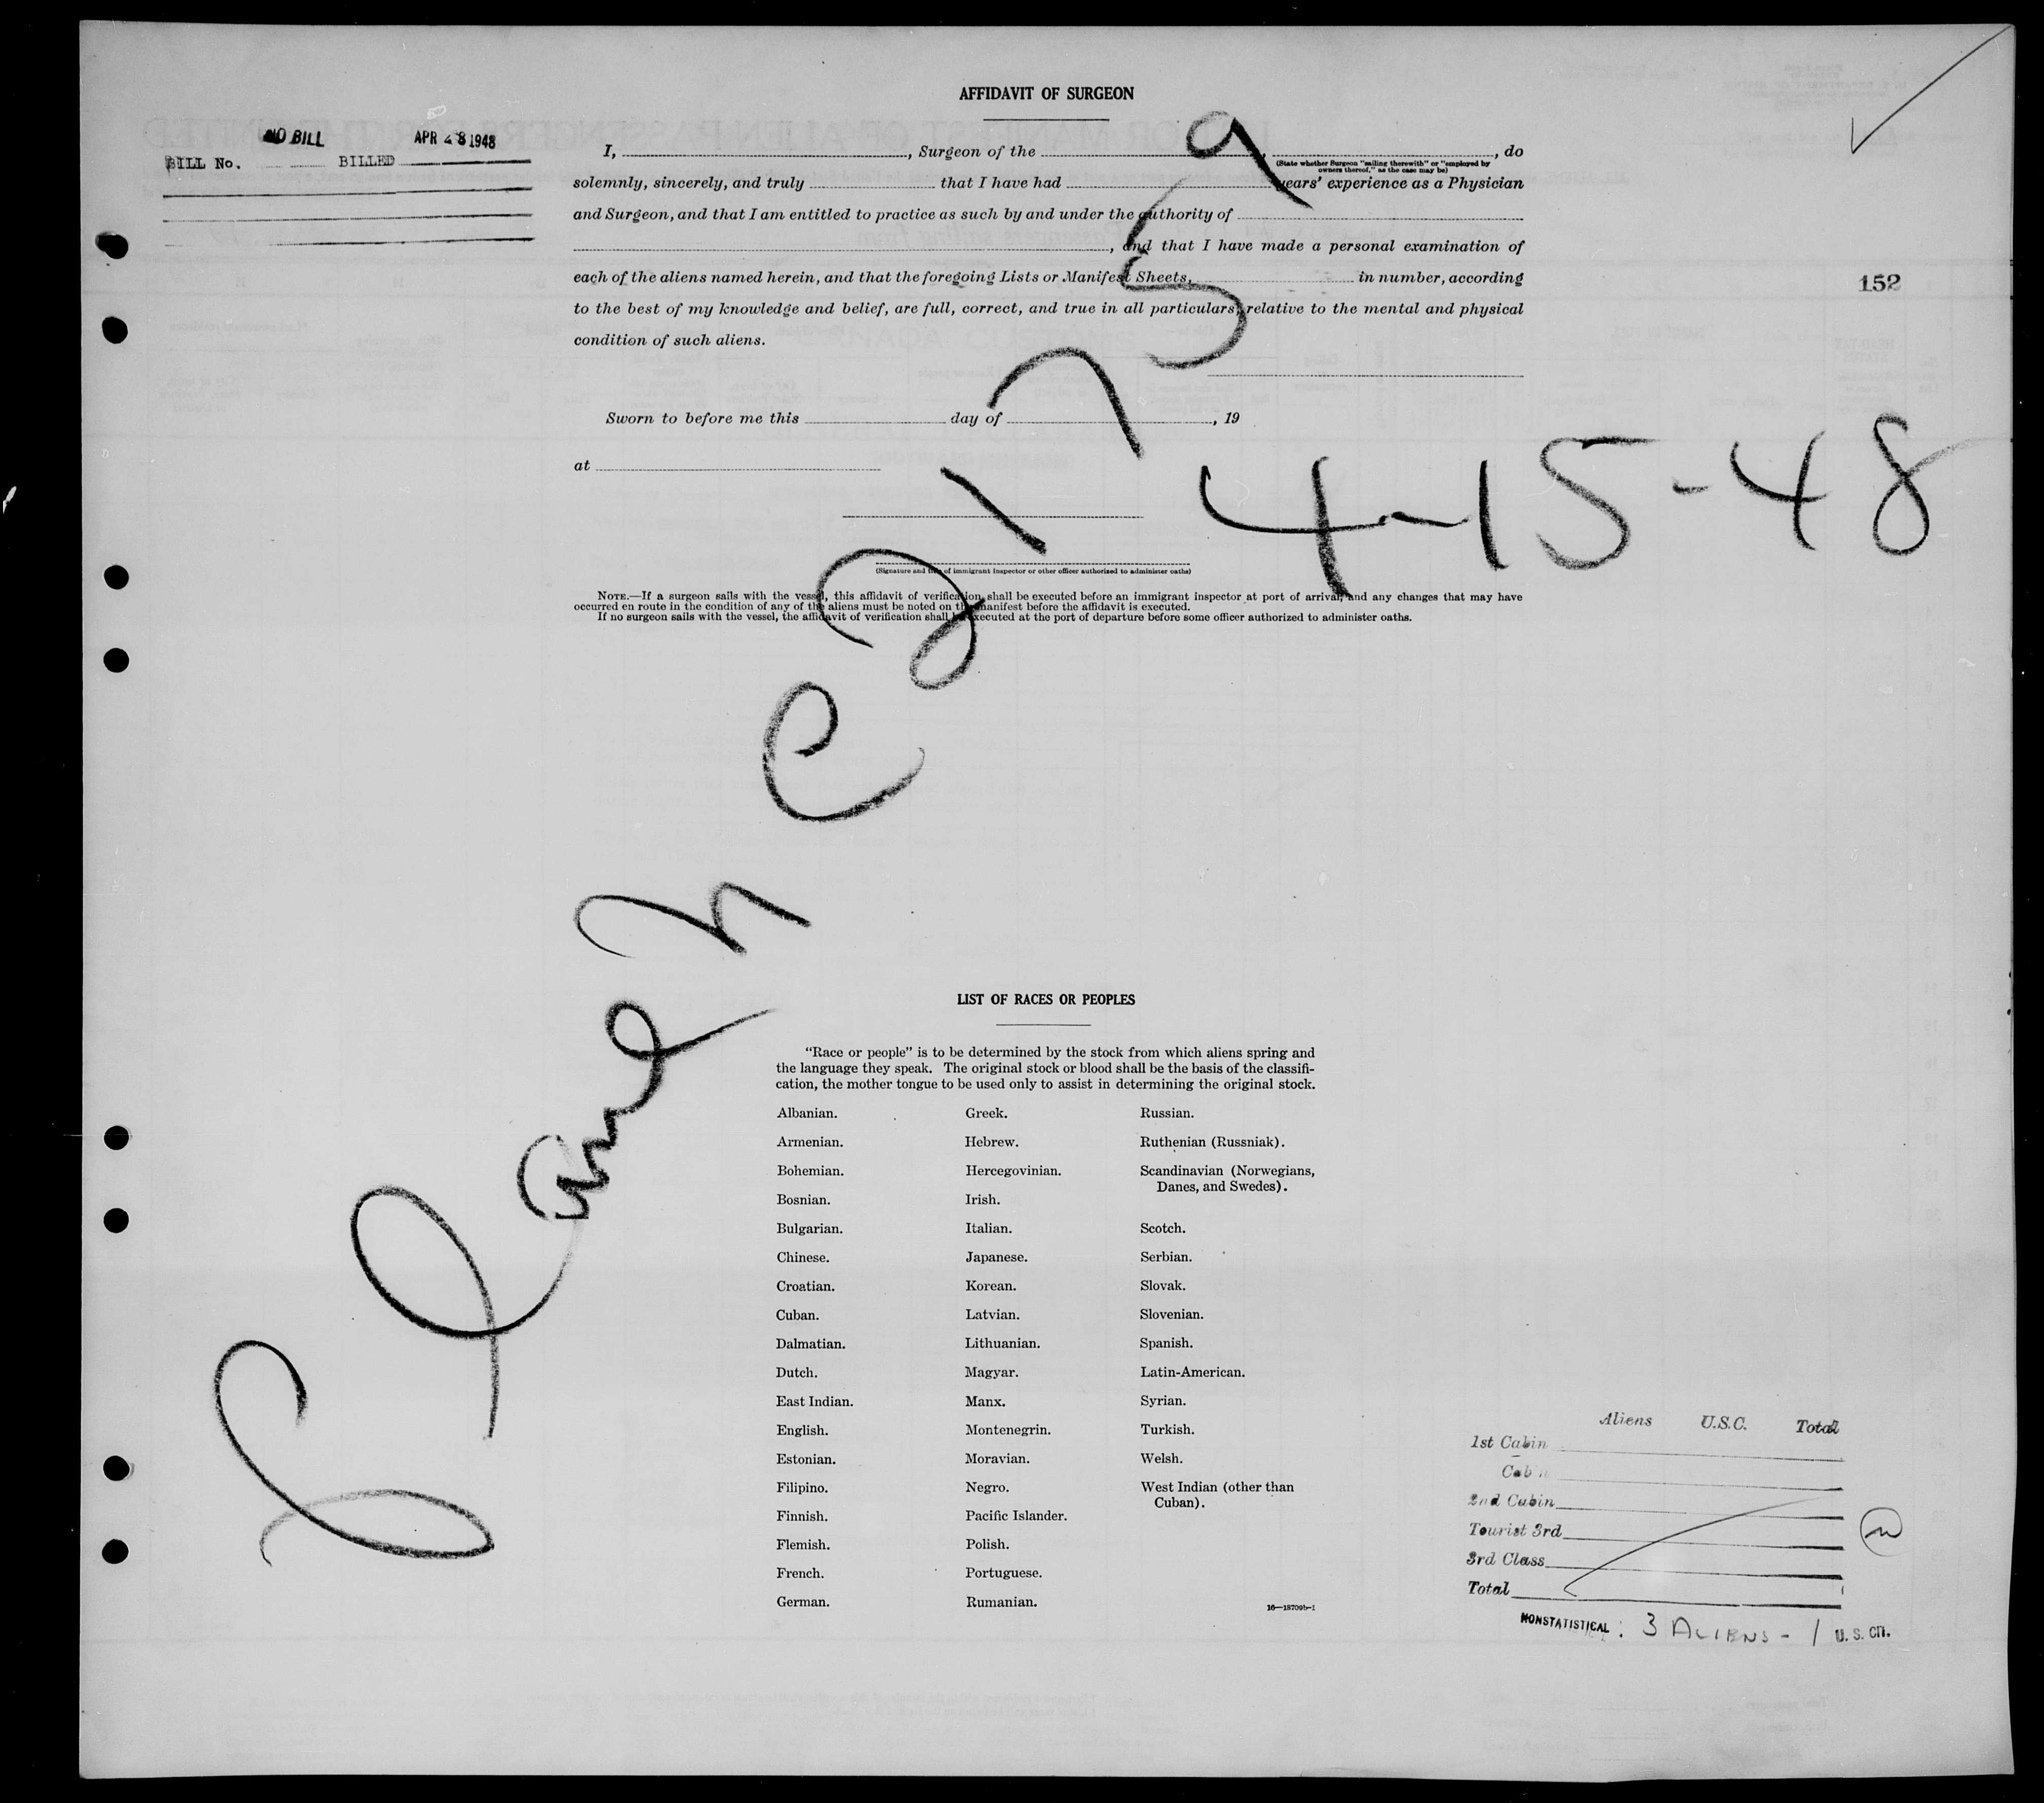 AFFIDAVIT OF SURGEON
NO BILL
APR 28 1948
BILL No. BILLED
I, , Surgeon of the , , do
(State whether Surgeon "sailing therewith" or "employed by
owners thereof," as the case may be)
solemnly, sincerely, and truly that I have had years' experience as a Physician
and Surgeon, and that I am entitled to practice as such by and under the authority of
, and that I have made a personal examination of
each of the aliens named herein, and that the foregoing Lists or Manifest Sheets, in number, according
to the best of my knowledge and belief, are full, correct, and true in all particulars, relative to the mental and physical
condition of such aliens.
152
Sworn to before me this day of , 19
at
(Signature and title of immigrant inspector or other officer authorized to administer oaths)
NOTE.—If a surgeon sails with the vessel, this affidavit of verification shall be executed before an immigrant inspector at port of arrival, and any changes that may have
occurred en route in the condition of any of the aliens must be noted on the manifest before the affidavit is executed.
If no surgeon sails with the vessel, the affidavit of verification shall be executed at the port of departure before some officer authorized to administer oaths.
Clarence 21759
4-15-48
LIST OF RACES OR PEOPLES
"Race or people" is to be determined by the stock from which aliens spring and
the language they speak. The original stock or blood shall be the basis of the classifi-
cation, the mother tongue to be used only to assist in determining the original stock.
Albanian. Greek. Russian.
Armenian. Hebrew. Ruthenian (Russniak).
Bohemian. Hercegovinian. Scandinavian (Norwegians,
Danes, and Swedes).
Bosnian. Irish.
Bulgarian. Italian. Scotch.
Chinese. Japanese. Serbian.
Croatian. Korean. Slovak.
Cuban. Latvian. Slovenian.
Dalmatian. Lithuanian. Spanish.
Dutch. Magyar. Latin-American.
East Indian. Manx. Syrian.
English. Montenegrin. Turkish.
Estonian. Moravian. Welsh.
Filipino. Negro. West Indian (other than
Cuban).
Finnish. Pacific Islander.
Flemish. Polish.
French. Portuguese.
German. Rumanian.
16—18709b-1
Aliens U.S.C. Total
1st Cabin
Cabin
2nd Cabin
Tourist 3rd
3rd Class
Total
NONSTATISTICAL : 3 ALIENS - 1 U. S. CIT.